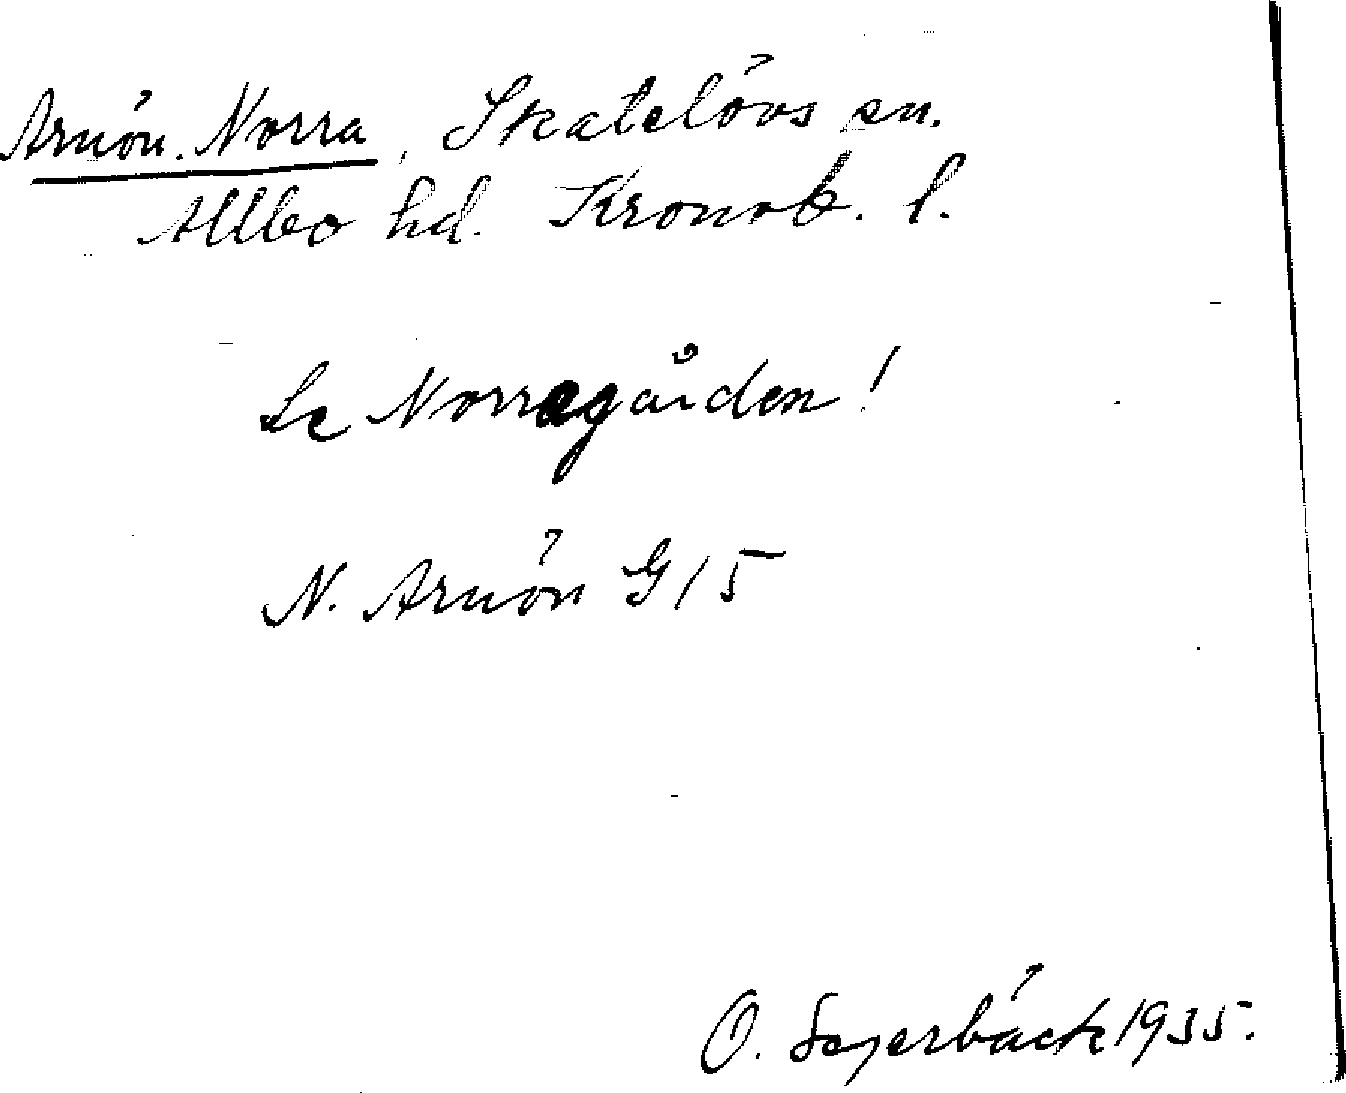 Arnön. Norra, Skatelövs sn.
Allbo hd. Kronob. l.
Se Norregården!
N. Arnön G15
O. Sejerbäck 1935.